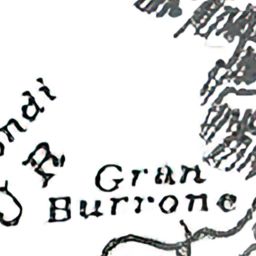 ndi
R
Gran
Burrone